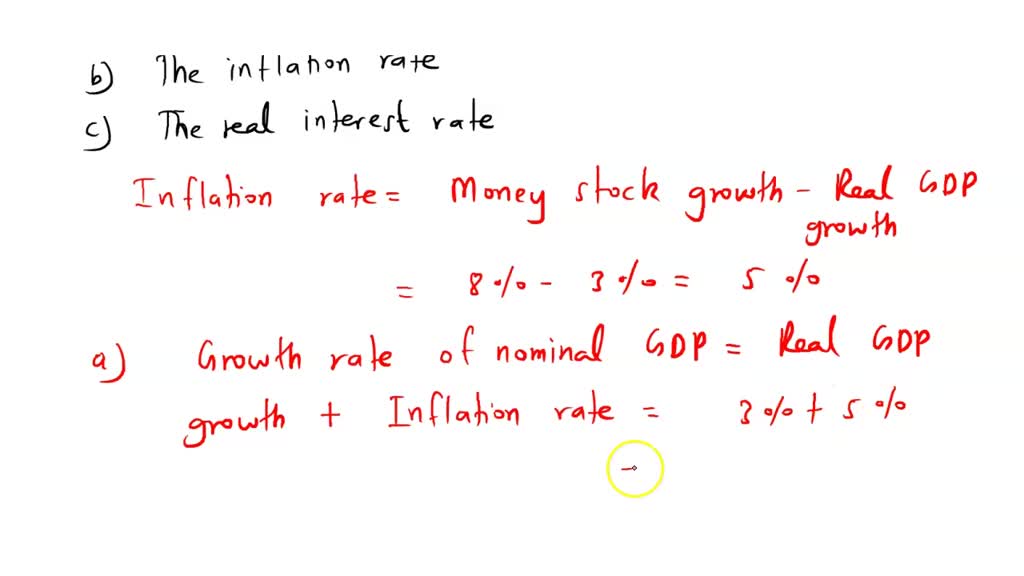 b) The inflation rate
c) The real interest rate
Inflation rate = Money stock growth - Real GDP
growth
= 8% - 3% = 5%
a) Growth rate of nominal GDP = Real GDP
growth + Inflation rate = 3% + 5%